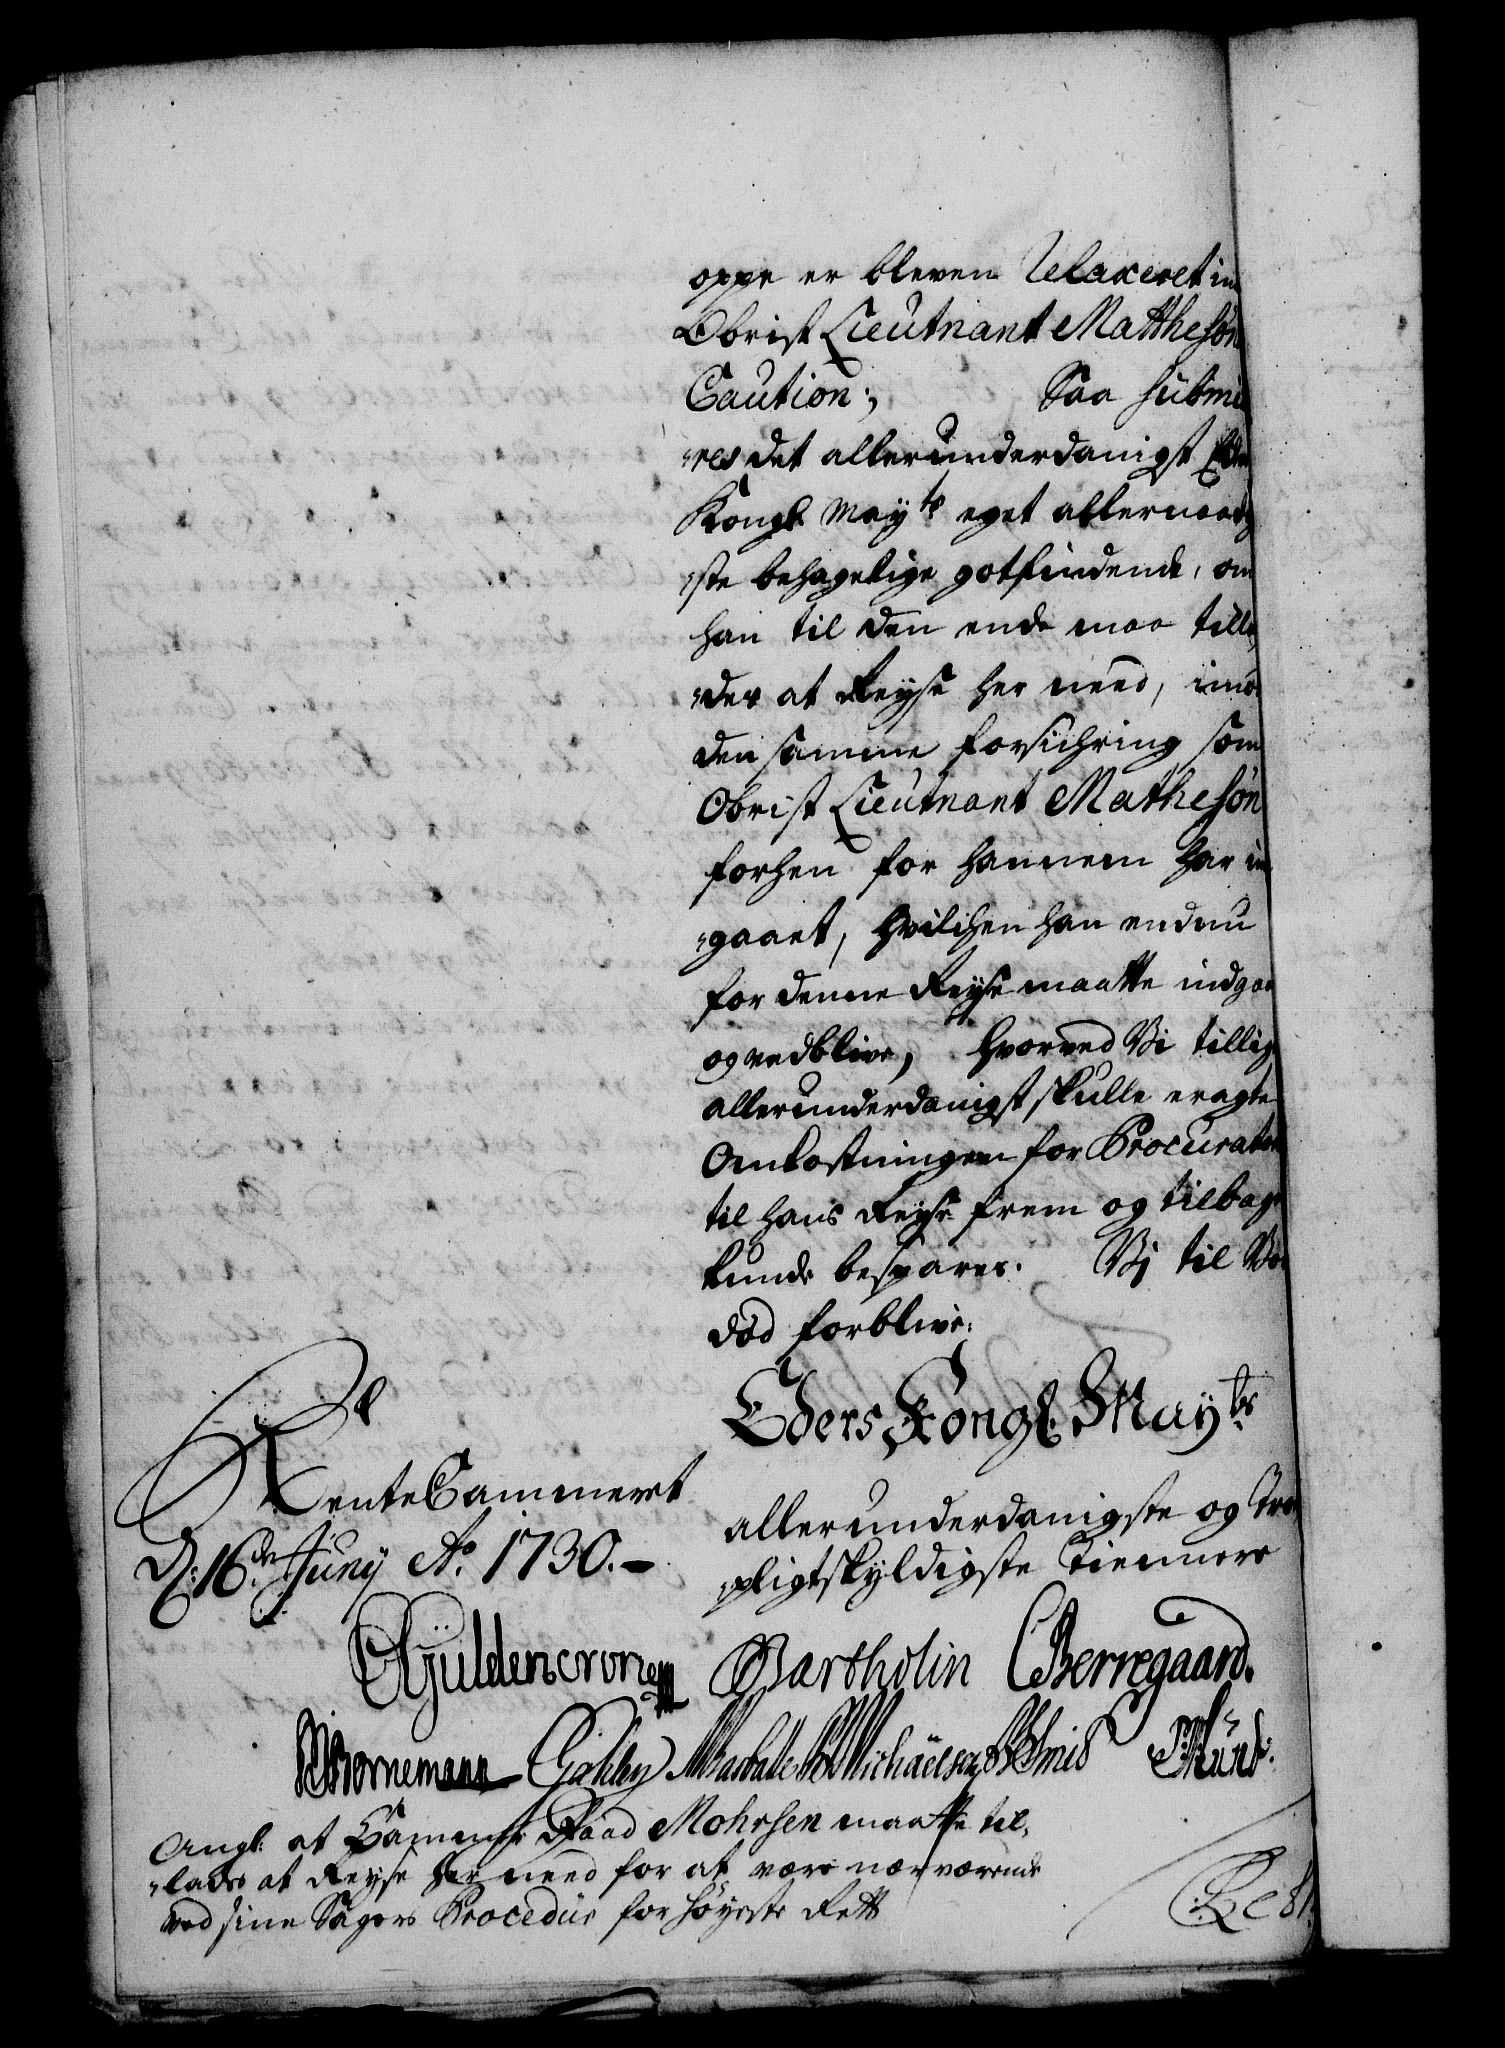 oppe er bleven Relaxeret im
Obrist Lieutnant Matthesøn
Caution; Saa submit
„res det allerunderdanigst Eders
Kongl. Mayts eget allernaadig
„ste behagelige gotfindende, om
han til den ende maa tilla„
„des at Reyse her need, imod
den samme forsichring som
Obrist Lieutnant Mathesøn
forhen for hannem har ind
„gaaet, hvilchen han endnu
for denne Reyse maatte indgaae
og vedblive, hvorved Vi tillige
allerunderdanigst skulle eragte
Omkostningen for Procurator
til hans Reyse frem og tilbage
kunde bespares. Vi til Vor
død forblive.
Eders Kongl. Mayts
RenteCammeret
D: 16de Juny Ao. 1730.
allerunderdanigste og Troe
„pligtskyldigste Tiennere
CGüldencrone Bartholin CBerregaard.
Bornemann Michaelsen Smid
Angl. at Cammer Raad Mohrsen maatte til„
„lades at Reyse her need for at være nærværende
ved sine Sagers Procedur for høyeste Rett